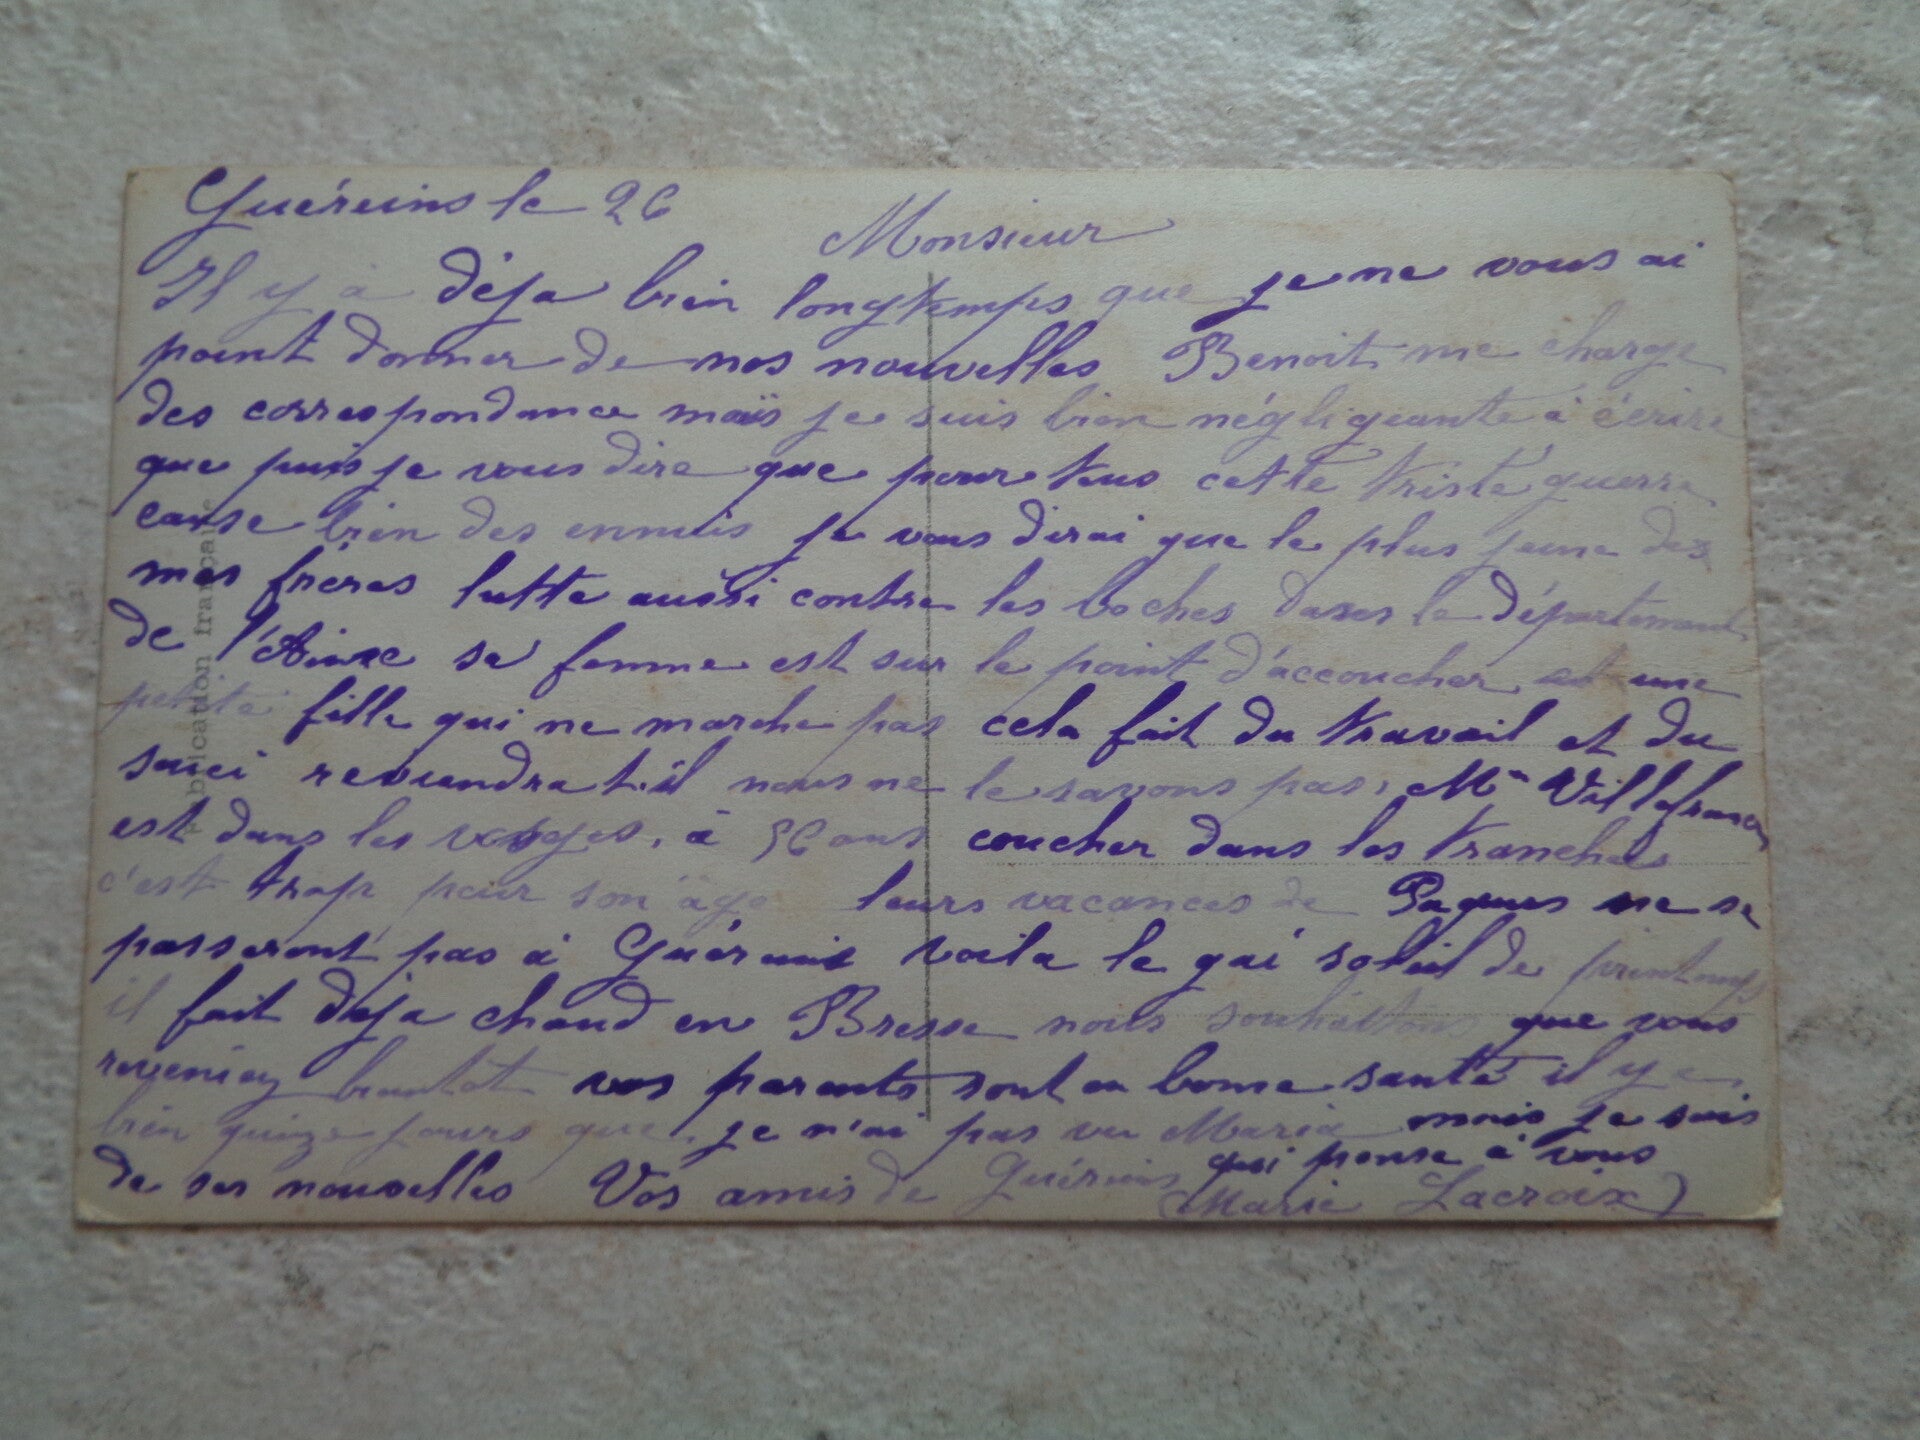 Guéreins le 26
Monsieur
Il y a déja bien longtemps que je ne vous ai
point donner de nos nouvelles Benoit me charge
des correspondance mais je suis bien négligeante à écrire
que puis je vous dire que pour tous cette triste guerre
cause bien des ennuis je vous dirai que le plus jeune des
mes frères lutte aussi contre les boches dans le département
de l'Aisne sa femme est sur le point d'accoucher et une
petite fille qui ne marche pas cela fait du travail et du
souci reviendra t.il nous ne le savons pas, Mr Villefranche
est dans les vosges, à 36 ans coucher dans les tranchées
c'est trop pour son âge leurs vacances de Paques ne se
passeront pas à Guéreins voila le gai soleil de printemps
il fait déja chaud en Bresse nous souhaitons que vous
reveniez bientot vos parents sont en bonne santé il y a
bien quinze jours que je n'ai pas vu Maria mais je sais
de ses nouvelles Vos amis de Guéreins qui pense à vous
(Marie Lacroix)
Fabrication française